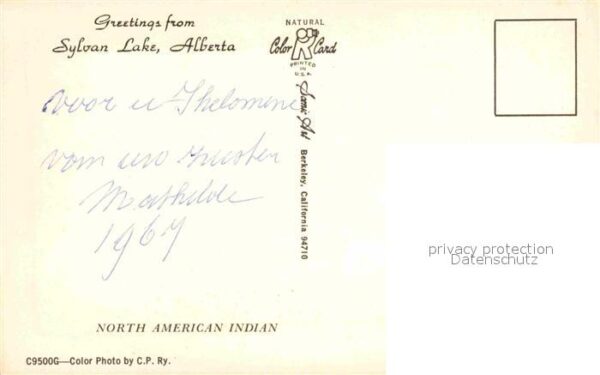 Greetings from
Sylvan Lake, Alberta
NATURAL
Color Card
PRINTED IN U.S.A.
Scenic Art
Berkeley, California 94710
voor u
van uw zuster
Mathilde
1967
privacy protection
Datenschutz
NORTH AMERICAN INDIAN
C9500G—Color Photo by C.P. Ry.